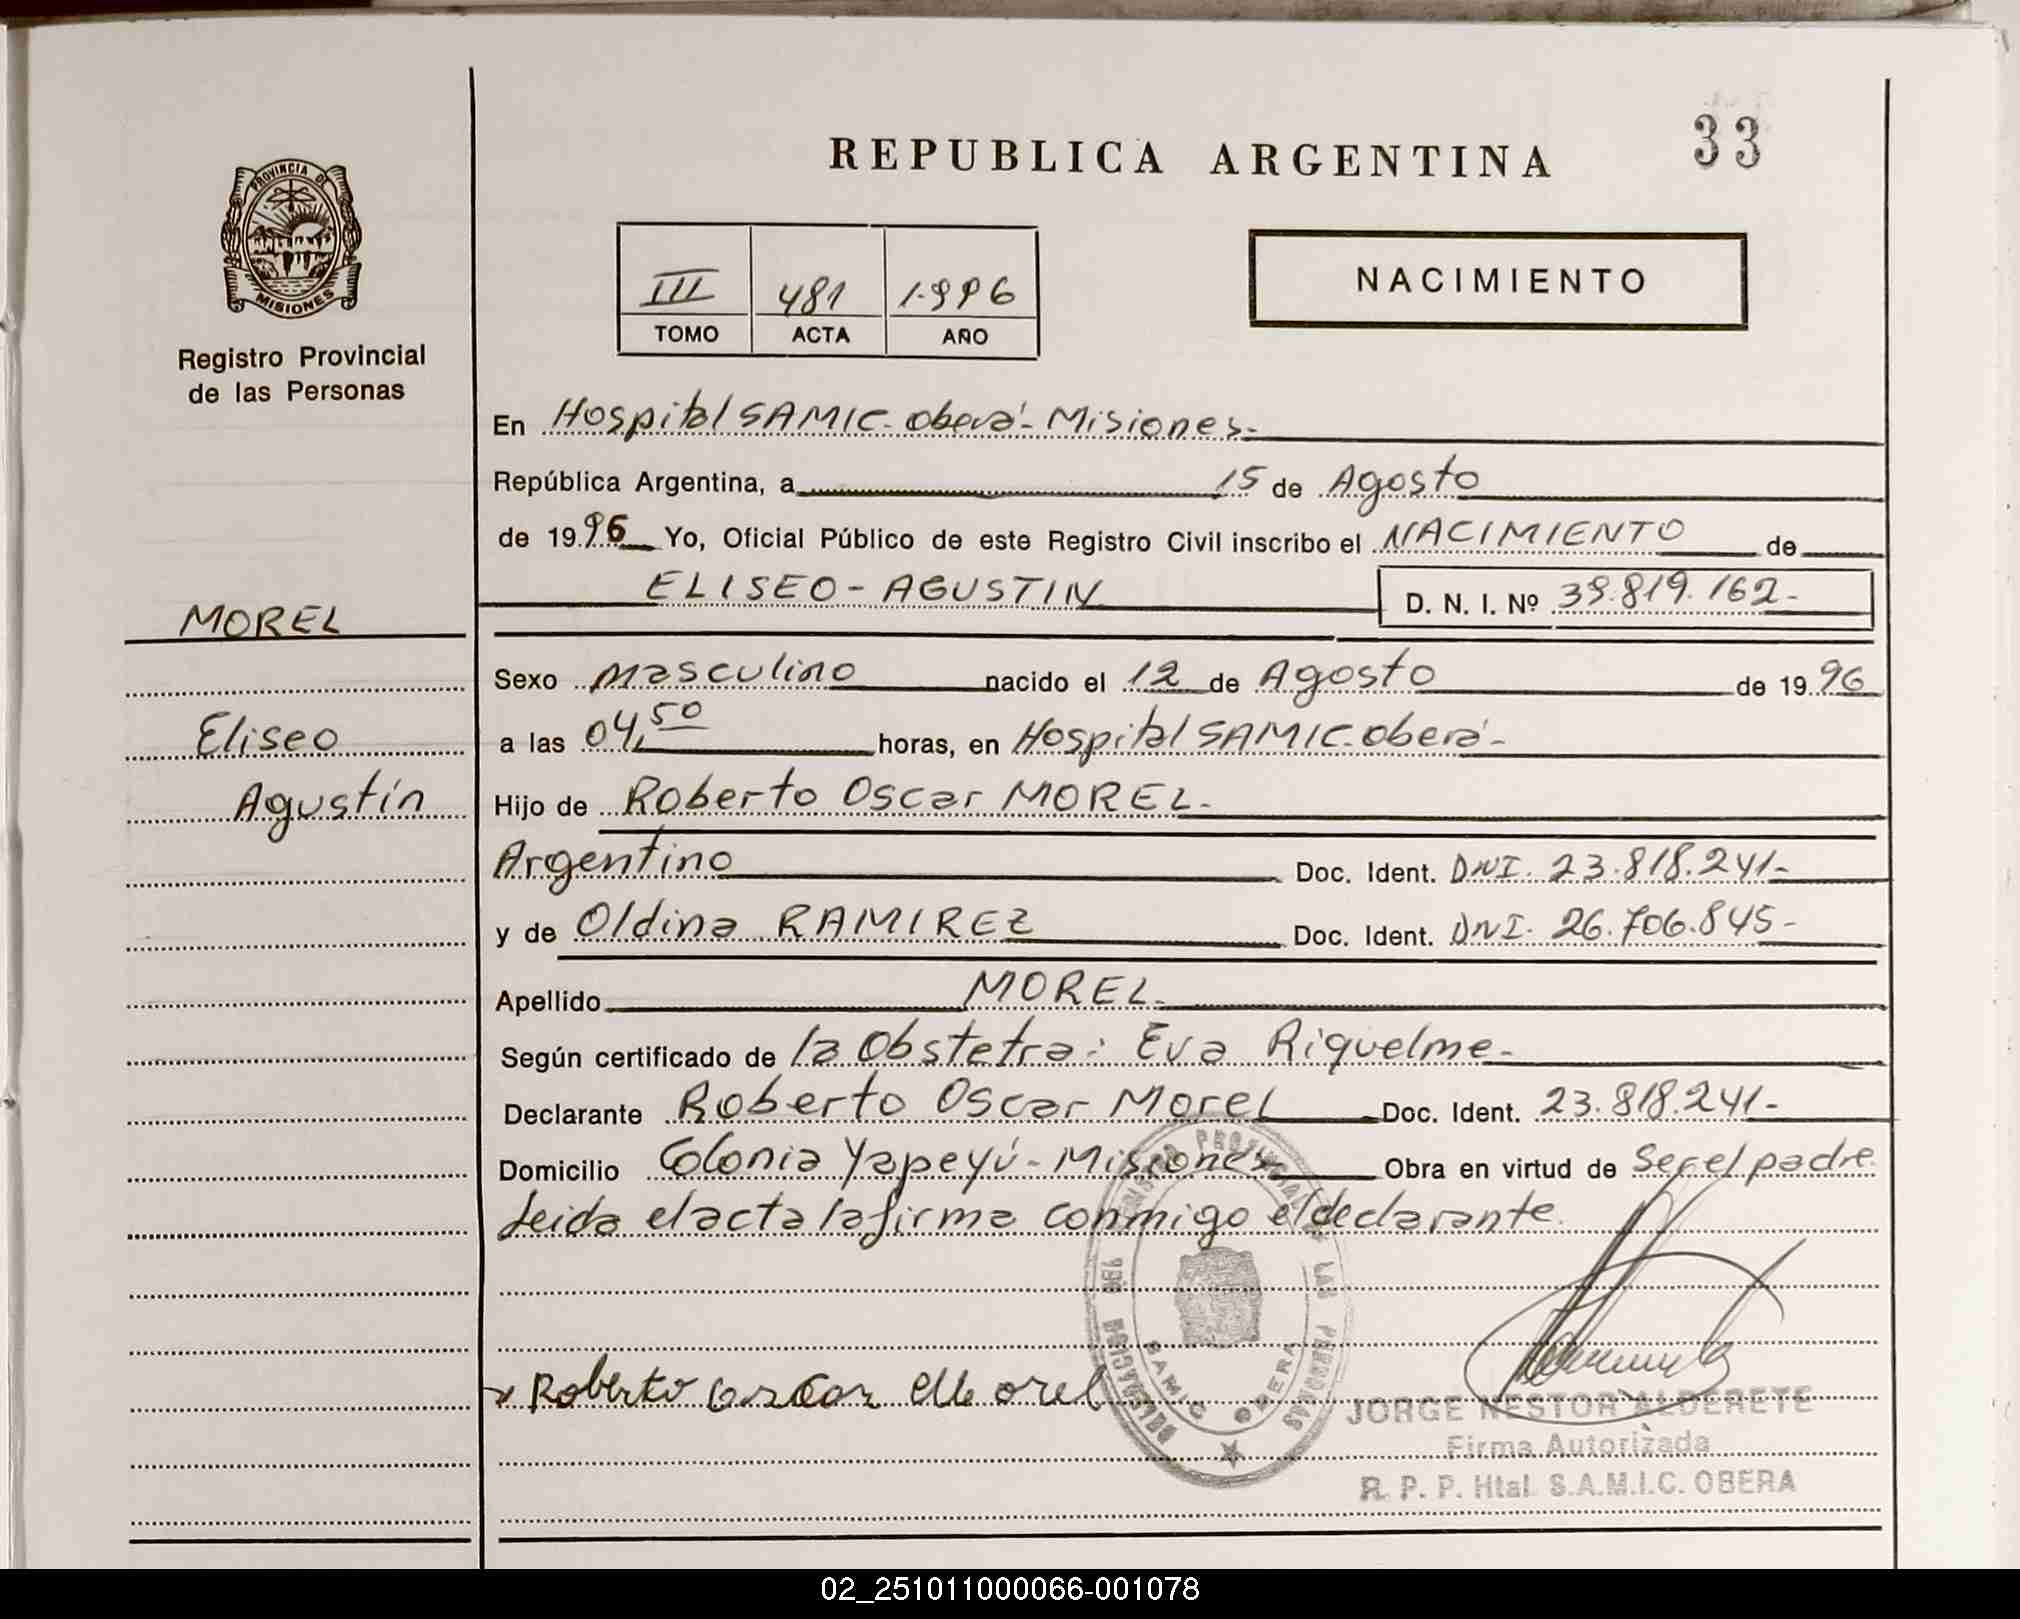 33
REPUBLICA ARGENTINA
PROVINCIA DE
MISIONES
Registro Provincial
de las Personas
III 481 1.996
TOMO ACTA AÑO
NACIMIENTO
En Hospital SAMIC. oberá - Misiones.
República Argentina, a 15 de Agosto
de 1996 Yo, Oficial Público de este Registro Civil inscribo el NACIMIENTO de
ELISEO - AGUSTIN D. N. I. Nº 39.819.162-
MOREL
Sexo masculino nacido el 12 de Agosto de 1996
Eliseo
a las 04,50 horas, en Hospital SAMIC. oberá -
Agustín
Hijo de Roberto Oscar MOREL.
Argentino Doc. Ident. DNI. 23.818.241-
y de Oldina RAMIREZ Doc. Ident. DNI. 26.706.845-
Apellido MOREL.
Según certificado de la Obstetra: Eva Riquelme-
Declarante Roberto Oscar Morel Doc. Ident. 23.818.241-
Domicilio Colonia Yapeyú - Misiones Obra en virtud de Ser el padre
Leida el acta la firma conmigo el declarante.
REGISTRO PROVINCIAL DE LAS PERSONAS
DELEGACION DEL
SAMIC OBERA
Roberto oscar Morel
JORGE NESTOR ALDERETE
Firma Autorizada
R. P. P. Htal. S.A.M.I.C. OBERA
02_251011000066-001078